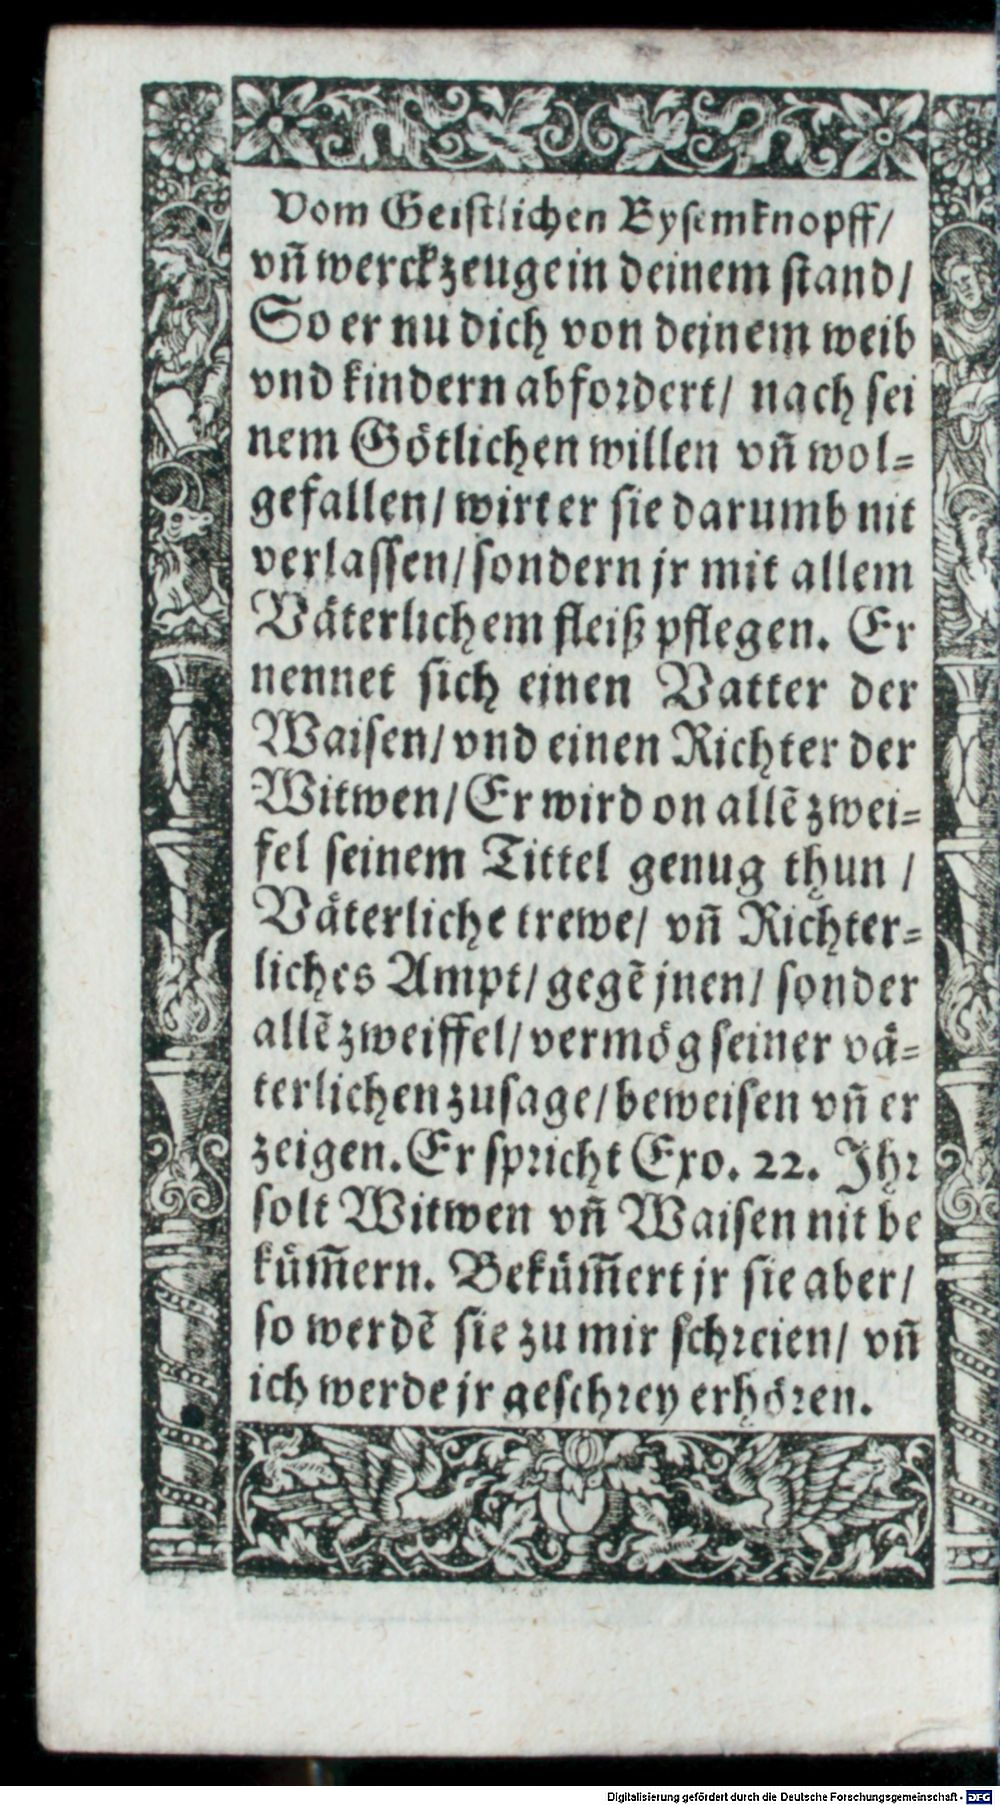 Vom Geistlichen Bysemknopff/
vñ werckzeuge in deinem stand/
So er nu dich von deinem weib
vnd kindern abfordert/ nach sei
nem Götlichen willen vñ wol=
gefallen/ wirt er sie darumb nit
verlassen/ sondern jr mit allem
Väterlichem fleiß pflegen. Er
nennet sich einen Vatter der
Waisen/ vnd einen Richter der
Witwen/ Er wird on allẽ zwei=
fel seinem Tittel genug thun /
Väterliche trewe/ vñ Richter=
liches Ampt/ gegẽ jnen/ sonder
allẽ zweiffel/ vermög seiner vä=
terlichen zusage/ beweisen vñ er
zeigen. Er spricht Exo. 22. Ihr
solt Witwen vñ Waisen nit be
küm̃ern. Beküm̃ert jr sie aber/
so werdẽ sie zu mir schreien/ vñ
ich werde jr geschrey erhören.
Digitalisierung gefördert durch die Deutsche Forschungsgemeinschaft - DFG